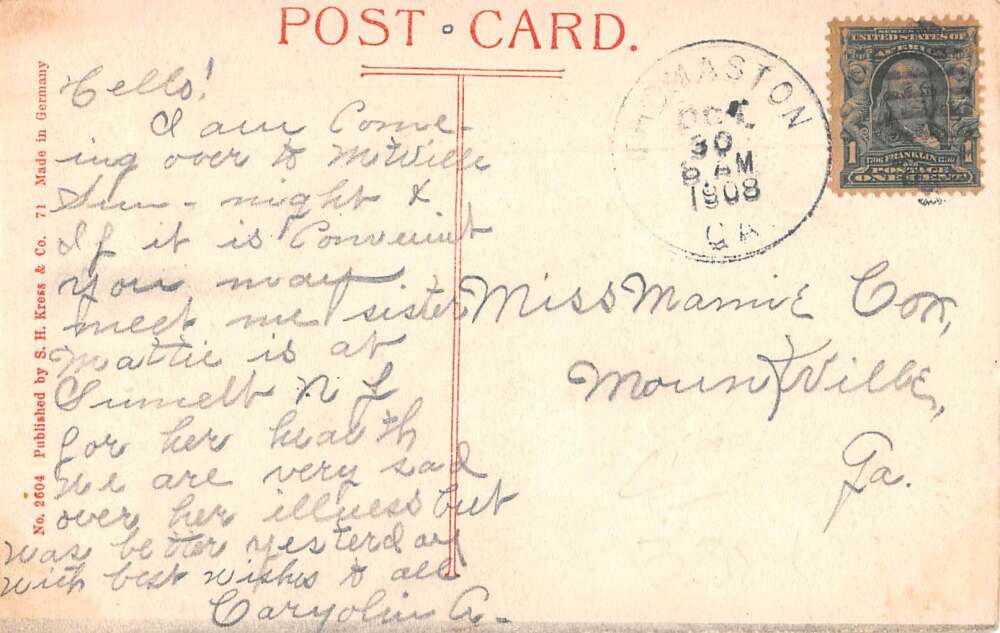 POST CARD.
No. 2604 Published by S. H. Kress & Co. 71 Made in Germany
Hello!
I am Come-
ing over to MtVille
Sun - night &
If it is Convenint
you may
meet me sister
Mattie is at
N
for her health
We are very sad
over her illness but
was better yesterday
with best wishes to all
THOMASTON
30
6 AM
1908
GA
SERIES 1902
UNITED STATES OF
AMERICA
1 1706 FRANKLIN 1790 1
POSTAGE
ONE CENT
Miss Mamie Cox,
MountVille,
Ga.